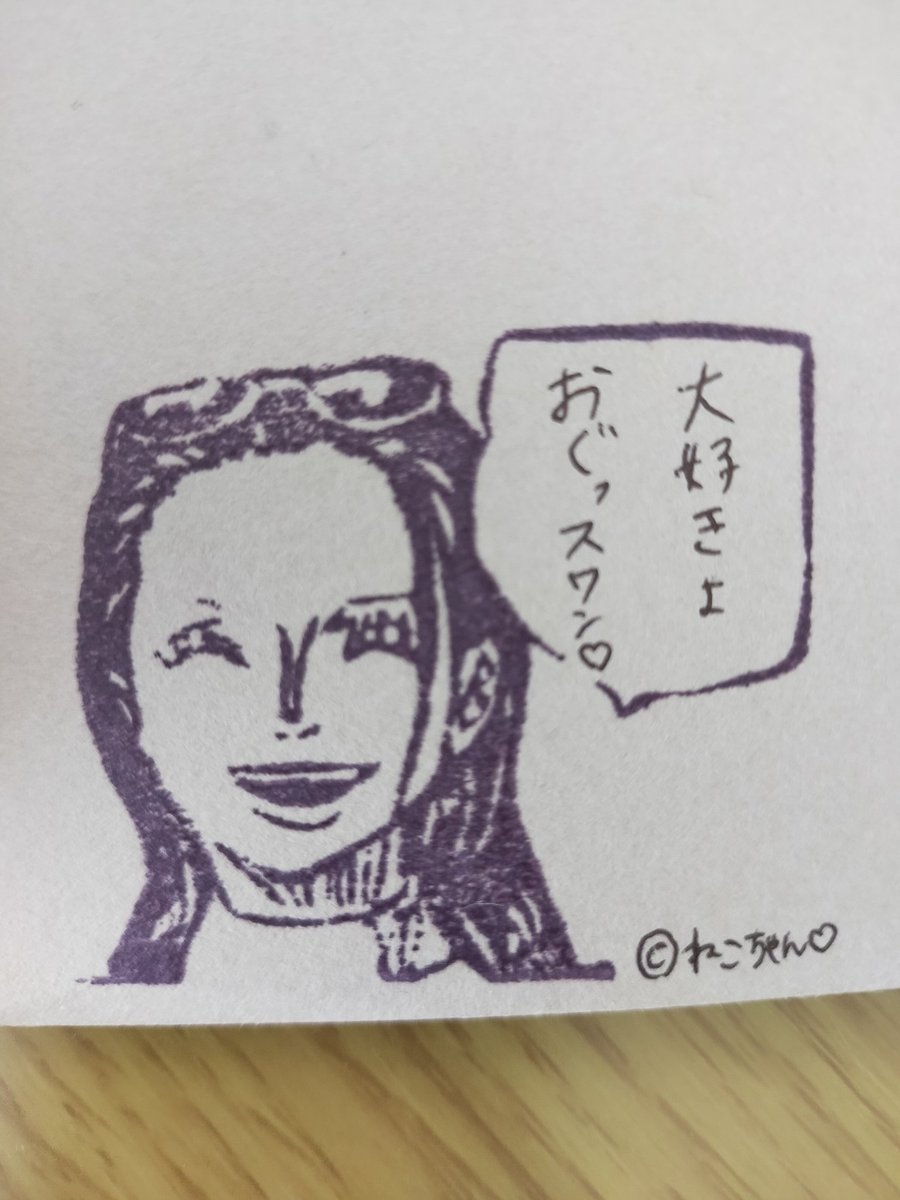 大好きよ
おぐっスワン♡
©ねこちゃん♡